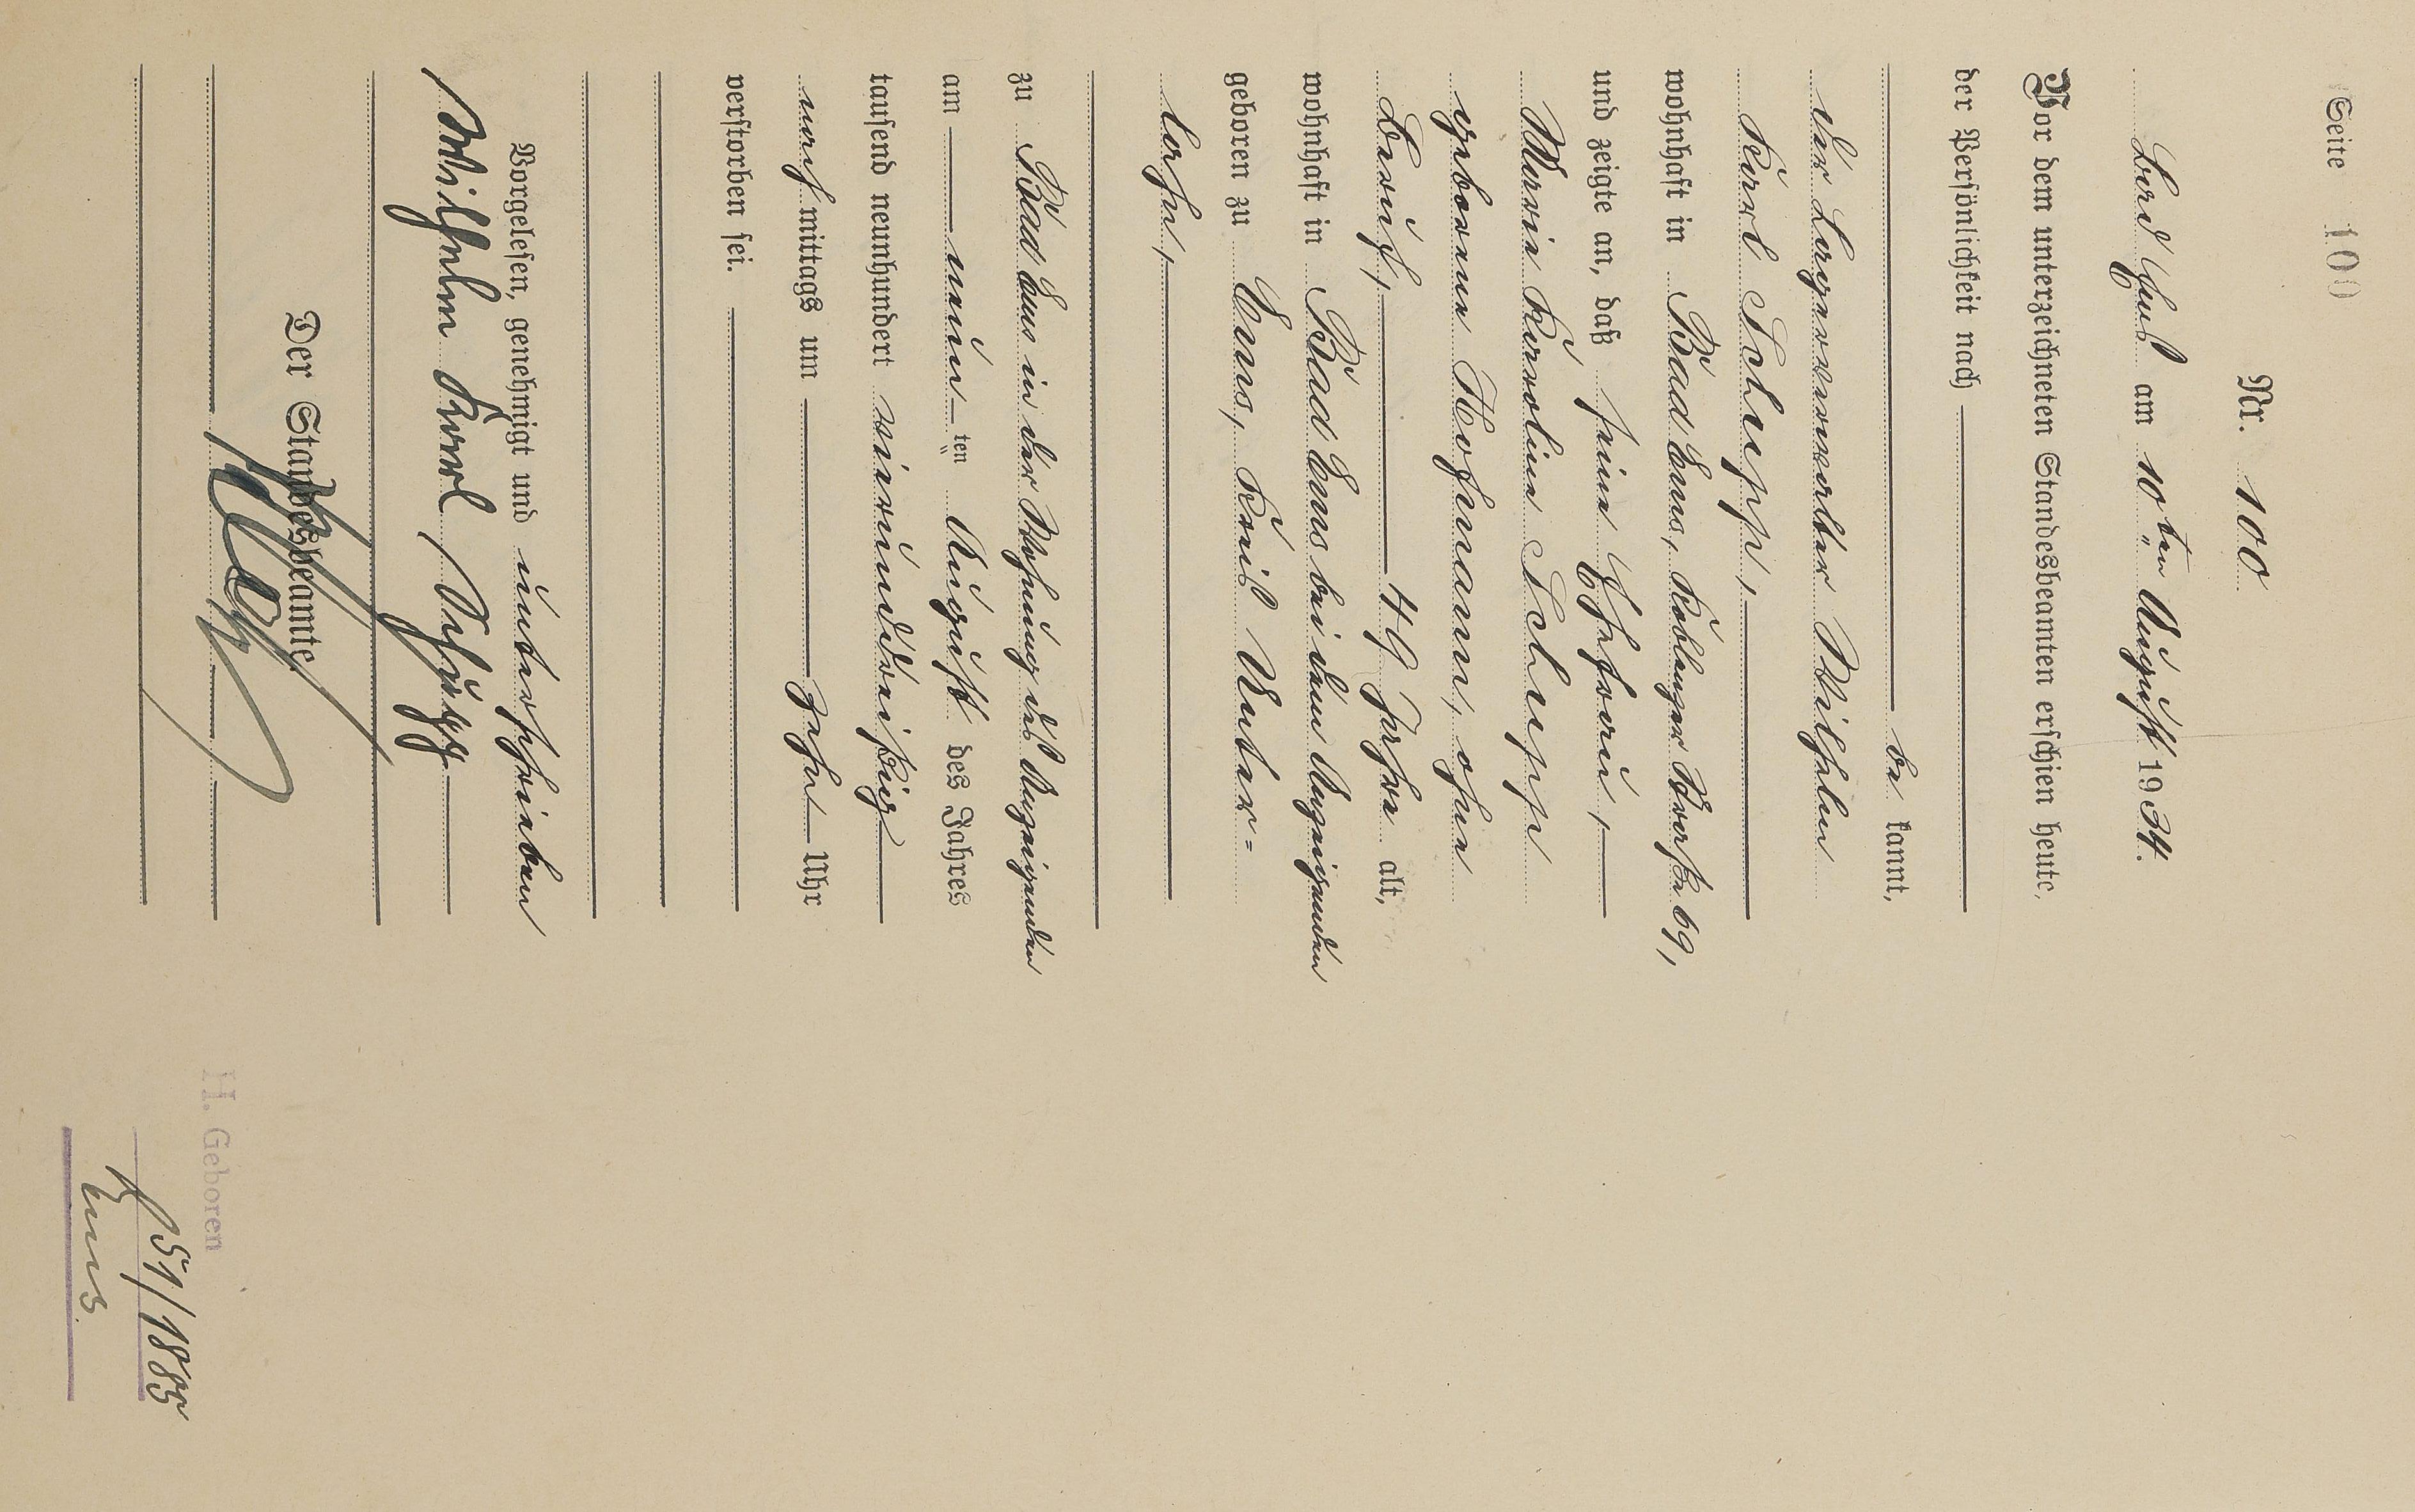 Seite 100
Nr. 100
Bad Ems am 10ten August 1934.
Vor dem unterzeichneten Standesbeamten erschien heute,
der Persönlichkeit nach
be kannt,
der Lagerverwalter Wilhelm
Karl Schupp,
wohnhaft in Bad Ems, Koblenzer Straße 69,
und zeigte an, daß seine Ehefrau,
Maria Karoline Schupp
geborene Hofmann, ohne
Beruf, 49 Jahre alt,
wohnhaft in Bad Ems bei dem Anzeigenden
geboren zu Ems, Kreis Unter=
lahn,
zu Bad Ems in der Wohnung des Anzeigenden
am neun ten August des Jahres
tausend neunhundert vierunddreißig
nach mittags um zehn Uhr
verstorben sei.
Vorgelesen, genehmigt und unterschrieben
Wilhelm Karl Schupp
Der Standesbeamte.
H. Geboren
51/1885
Ems.